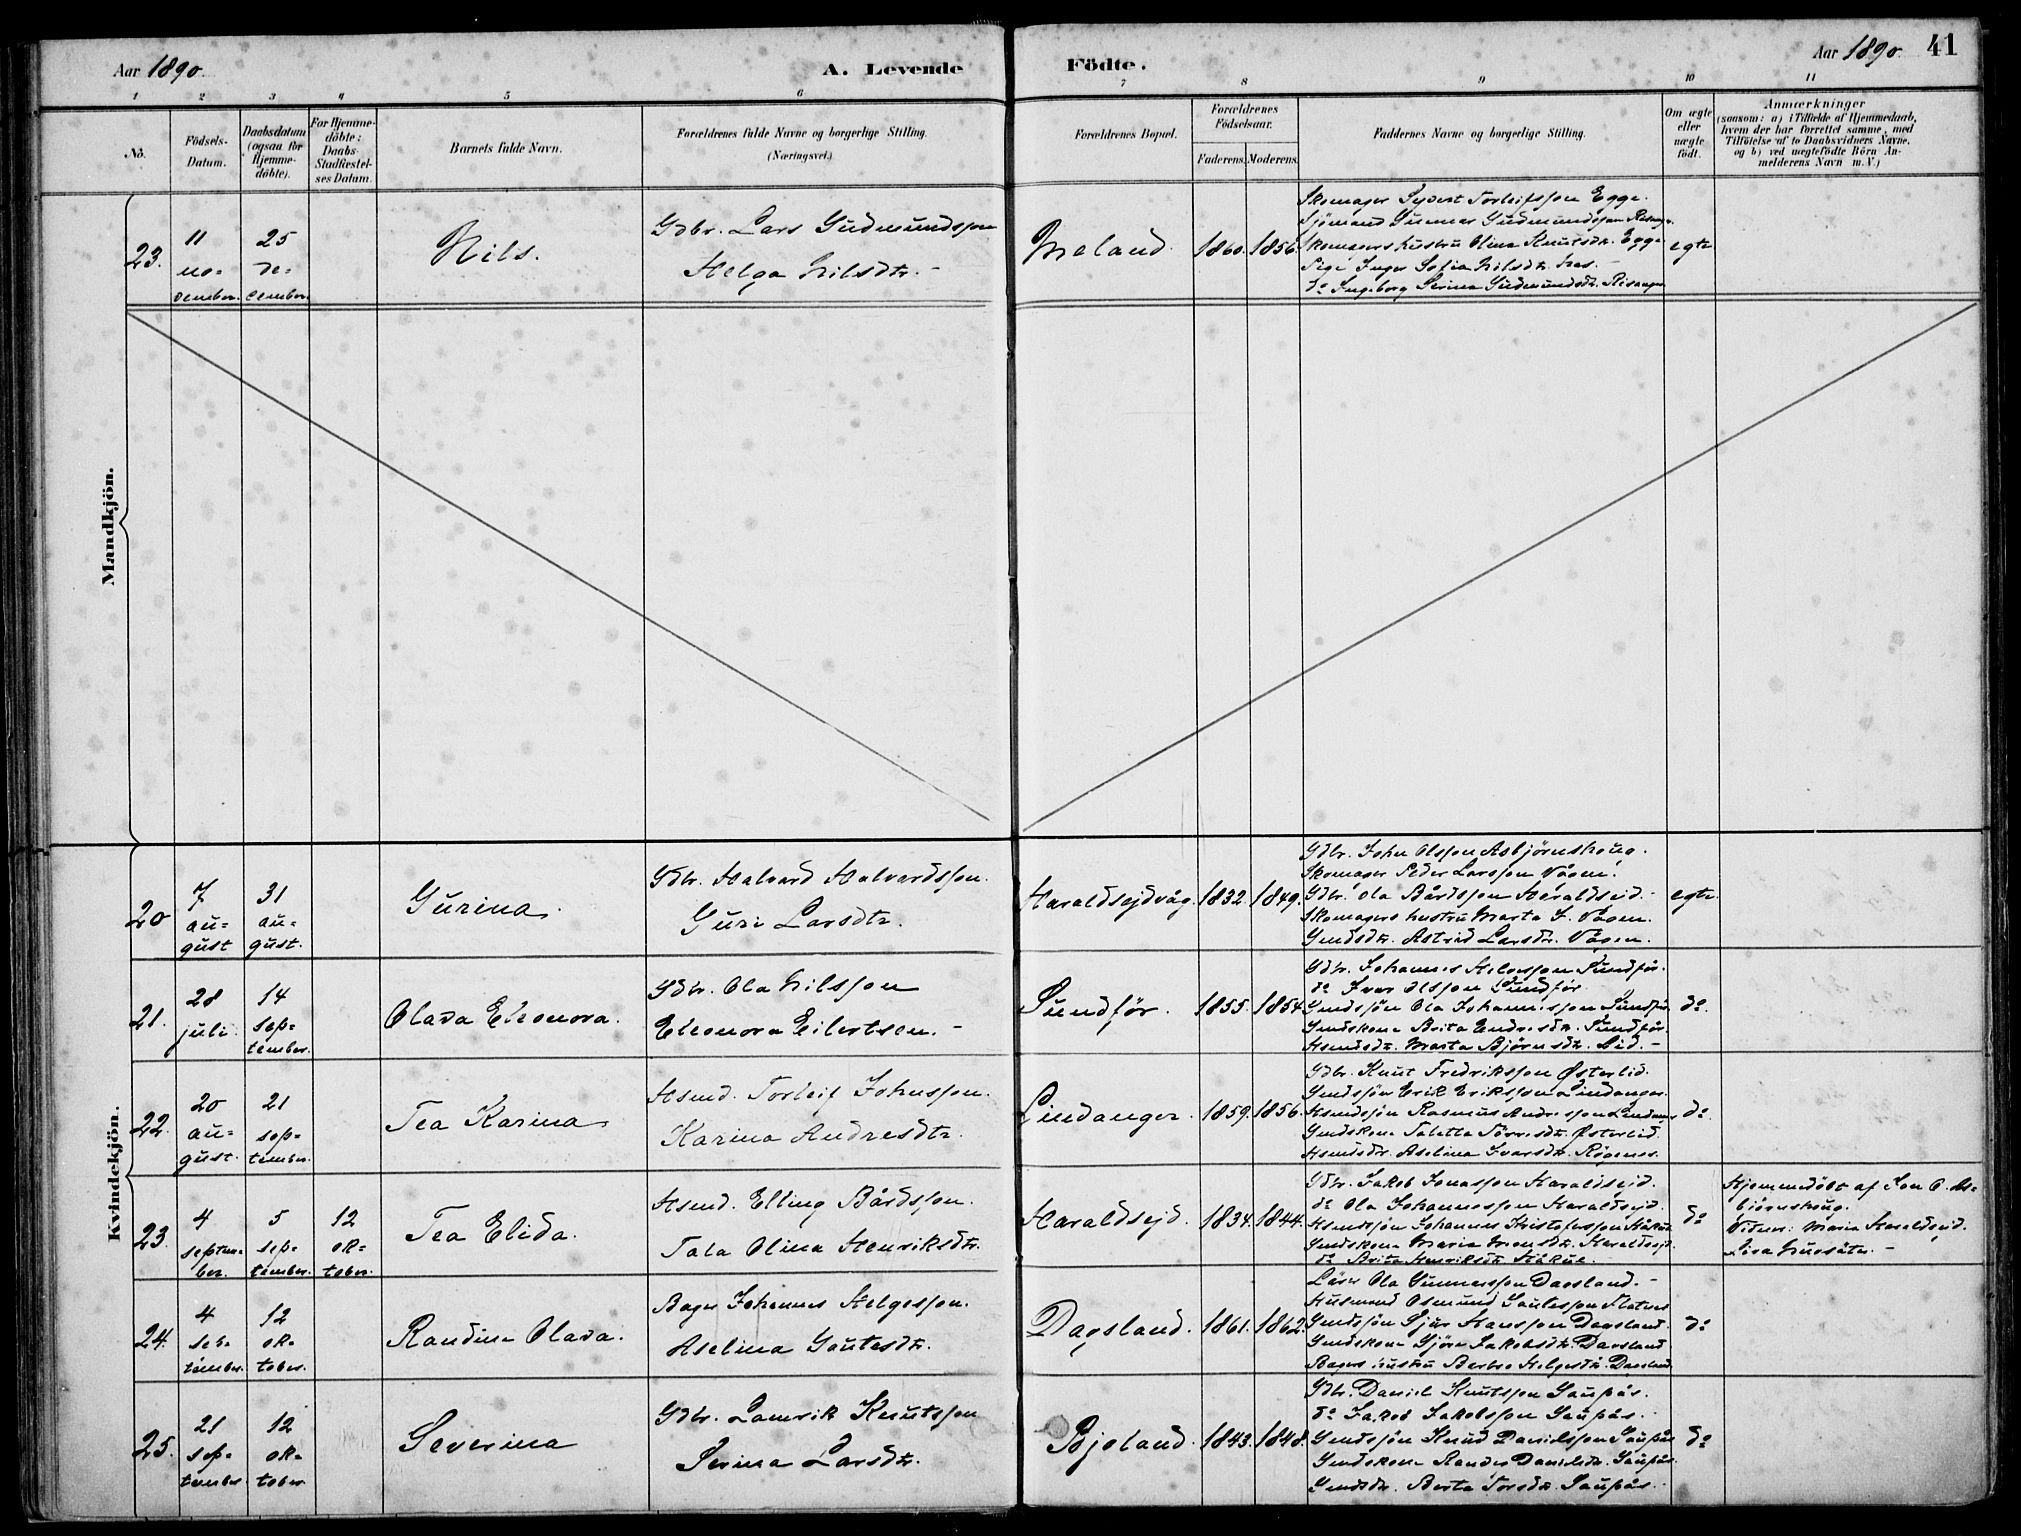 Aar 1890.
A. Levende Födte.
Aar 1890. 41
1 2 3 4 5 6 7 8 9 10 11
No.
Födsels-
Datum.
Daabsdatum
(ogsaa for
Hjemme-
döbte).
For Hjemme-
döbte:
Daabs-
Stadfæstel-
ses Datum.
Barnets fulde Navn.
Forældrenes fulde Navne og borgerlige Stilling.
(Næringsvei.)
Forældrenes Bopæl.
Forældrenes
Födselsaar.
Faderens. Moderens.
Faddernes Navne og borgerlige Stilling.
Om ægte
eller
uægte
födt.
Anmærkninger
(saasom: a) i Tilfælde af Hjemmedaab,
hvem der har forrettet samme, med
Tilföielse af to Daabsvidners Navne,
og b) ved uægtefödte Börn An-
melderens Navn m. V.)
Mandkjön.
23.
11
no-
vember.
25
de-
cember.
Nils.
Gdbr. Lars Gudmundsson
Helga Nilsdtr. -
Meland.
1860. 1856.
Skomager Sivert Torleifsson Egge.
Sjömand Gunnar Gudmundsson
Skomagers hustru Olina Knutsdtr. Egge
Pige Inger Sofia Nilsdtr. -
do Ingeborg Serina Gudmundsdtr. Risanger
egte
Kvindekjön.
20
7
au-
gust
31
au-
gust.
Gurina.
Gdbr. Halvard Halvardsson.
Guri Larsdtr.
Haraldsejdvåg.
1832. 1849.
Gdbr. John Olsson Asbjørnshoug.
Skomager Peder Larsson Vågen.
Gdbr. Ola Bårdsson Haraldseid. -
Skomagers hustru Marta J. Vågen.
Gmdsdtr. Astrid Larsdtr. Vågen.
egte.
21.
28
juli.
14
sep-
tember.
Olava Eleonora.
Gdbr. Ola Nilsson
Eleonora Eilertsen. -
Sundför.
1855. 1854.
Gdbr. Johannes Helgesson Sundför.
do Ivar Olsson Sundför
Gmdssön Ola Johannesson Sundför
Gmdskone Brita Endresdtr. Sundför.
Hsmdsdtr. Marta Björnsdtr. Eid. -
do.
22.
20
au-
gust.
21
sep-
tember.
Tea Karina
Hsmd. Torleif Johnsson.
Karina Andresdtr.
Lindanger.
1859. 1856.
Gdbr. Knut Fredriksson Østerlid.
Gmdssön Erik Eriksson Lindanger.
Hsmdssön Rasmus Andresson
Gmdskone Taletta Törresdtr. Østerlid.
Hsmdsdtr. Aselina Ivarsdtr. Røgenes.
do.
23.
4
septem-
ber.
5
sep-
tember.
12
ok-
tober.
Tea Elida.
Hsmd. Elling Bårdsson.
Tala Olina Henriksdtr.
Haraldsejd.
1834. 1844.
Gdbr. Jakob Jonasson Haraldseid.
do Ola Johannesson Haraldsejd.
Hsmdssön Johannes Kristofersson Håkul
Gmdskone Maria Monsdtr. Haraldsejd
do Brita Henriksdtr. Håkul.
do
Hjemmedöbt af Jon O. As-
björnshoug.
Vidner: Maria Haraldsejd.
24.
4
sep-
tember.
12
ok-
tober.
Randine Olava.
Bager Johannes Helgesson.
Aselina Gautesdtr.
Dagsland.
1861. 1862.
Lärer Ola Gunnarsson Dagsland. -
Husmand Osmund Gautesson Flatnes
Gmdssön Sjur Hansson Dagsland.
Gmdskone Gjöre Jakobsdtr. Dagsland
Bagers hustru Berta Helgesdtr. Dagsland.
do
25.
21
sep-
tember.
12
ok-
tober
Severina
Gdbr. Lamrik Knutsson
Serina Larsdtr.
Bjoland.
1843. 1848.
Gdbr. Daniel Knutsson Saupås.
do Jakob Jakobsson Saupås.
Gmdssön Knud Danielsson Saupås
Gmdskone Randes Danielsdtr. Saupås.
Gmdsdtr. Berta Torsdtr. Saupås.
do